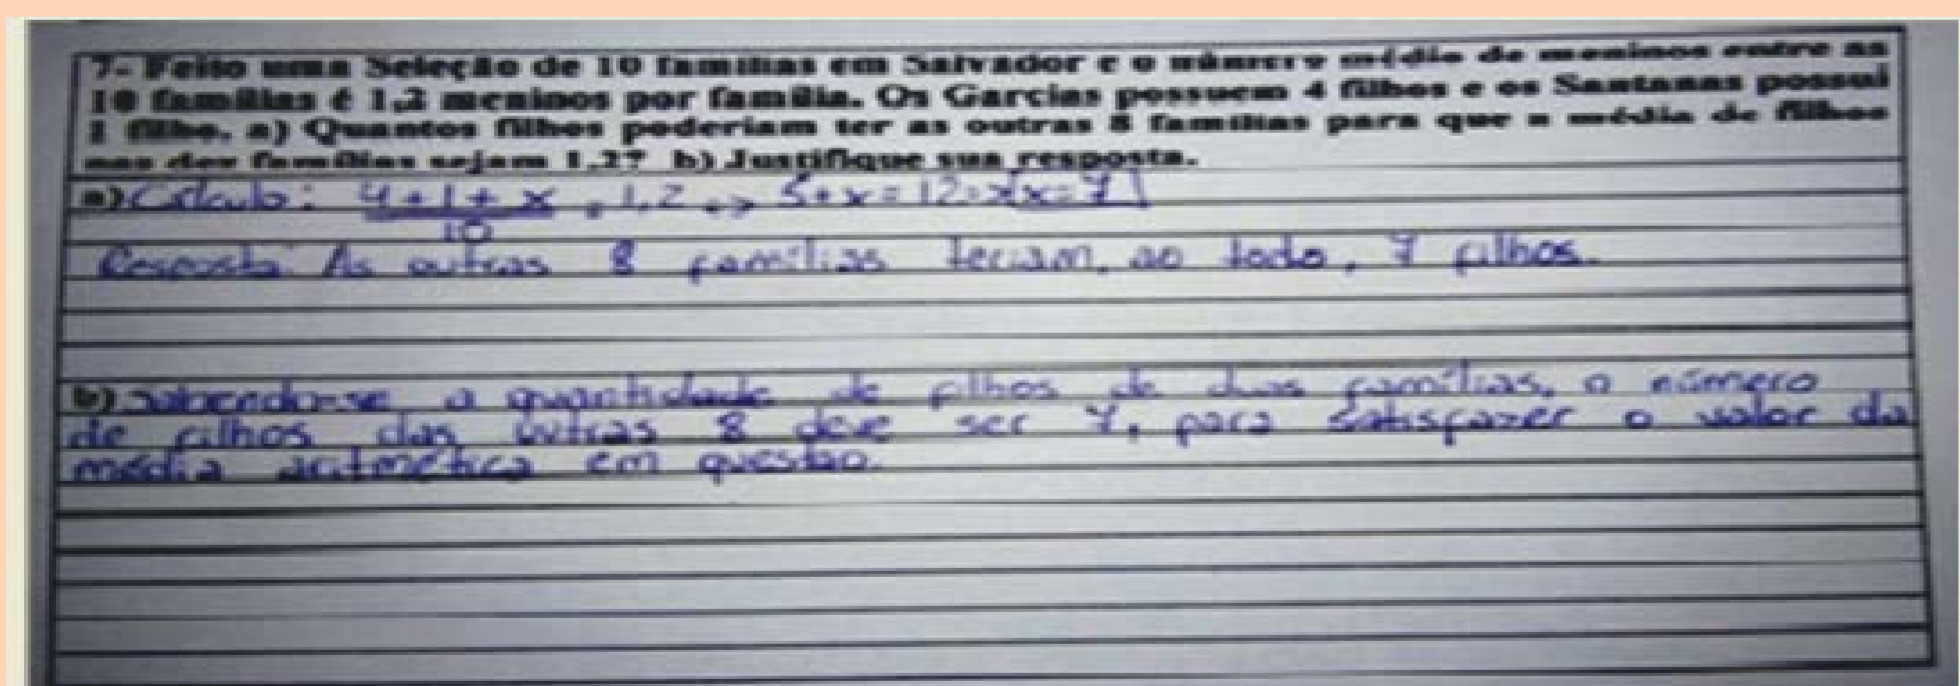 7- Feito uma Seleção de 10 famílias em Salvador e o número médio de meninos entre as
10 famílias é 1,2 meninos por família. Os Garcias possuem 4 filhos e os Santanas possui
1 filho. a) Quantos filhos poderiam ter as outras 8 famílias para que a média de filhos
nas dez famílias sejam 1,2? b) Justifique sua resposta.
a) Cálculo: 4+1+x/10 = 1,2 <-> 5+x=12=>x=7
Resposta: As outras 8 famílias teriam, ao todo, 7 filhos.
b) Sabendo-se a quantidade de filhos de duas famílias, o número
de filhos das outras 8 deve ser 7, para satisfazer o valor da
média aritmética em questão.